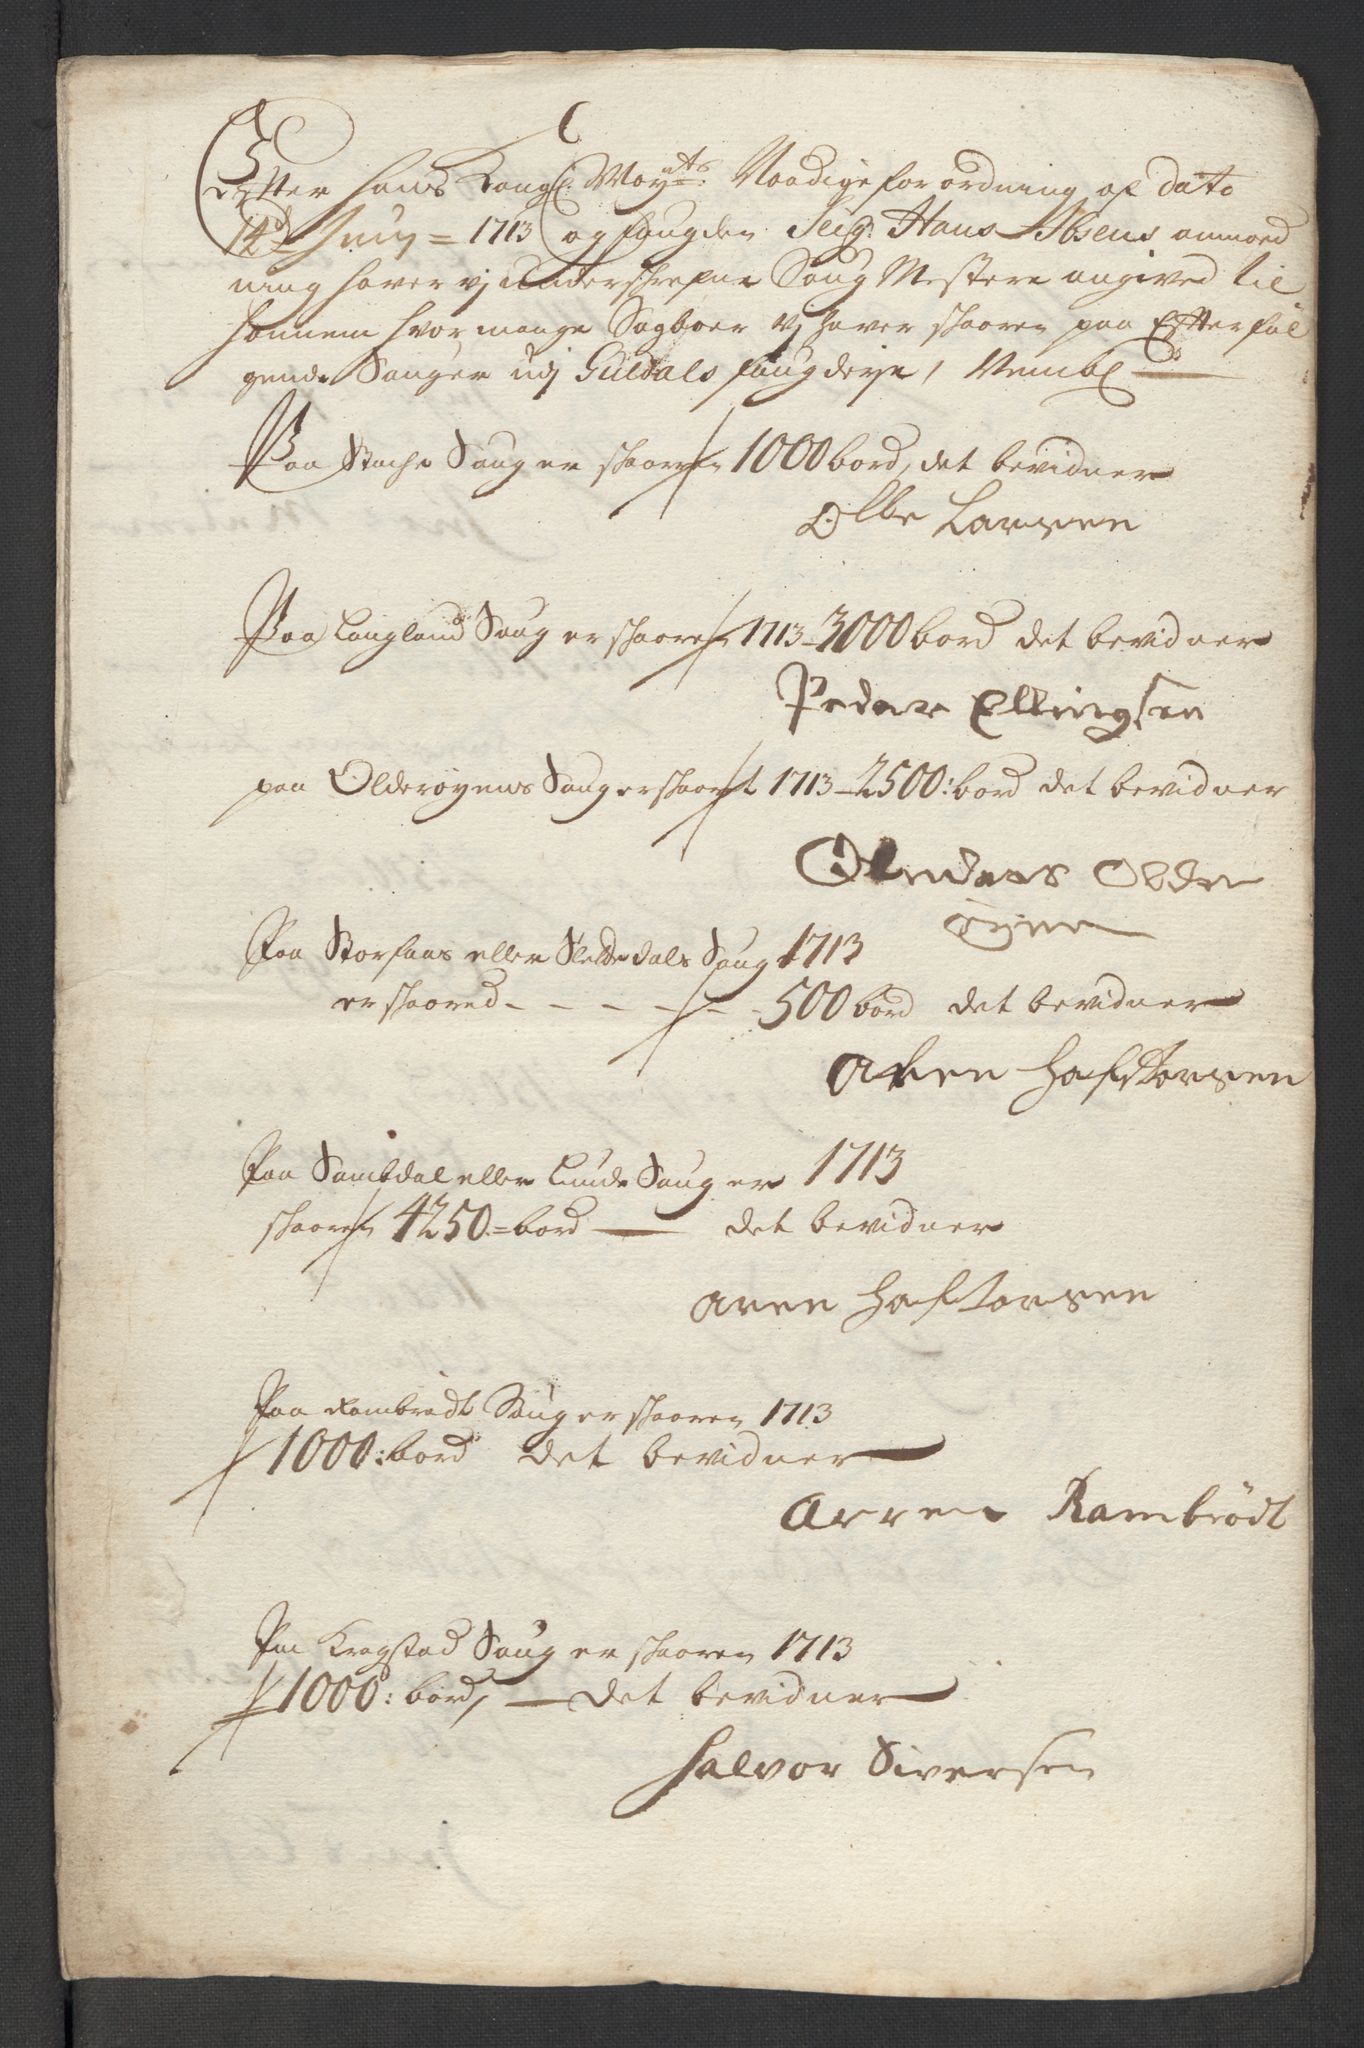 Efter Hans Kongl: Mayts: Naadige forordning af dato
12d Juny = 1713 og fougden Seig: Hans Ibsens anmod
ning hafver vj underschrefne Saug Mestere angived til
hannem hvor mange Sagboer vj hafver skaaren paa Efterføl
gende Sauger udj Guldals fougderje / Nembl:
Paa Stache Saug er skaaren 1000 bord, det bevidner
Olle Larsen
Paa Langland Saug er skaaren 1713 - 3000 bord det bevidner
Peder Ellingsen
paa Olderøyens Saug er skaaret 1713 - 2500: bord det bevidner
Andreas Olde
øyen
Paa Storsaas eller Slettedals Saug 1713
er skaared - - - - - - 500 bord det bevidner
Aren Hafstorsen
Paa Sambdal eller Lunde Saug er 1713
skaaren 4250 = bord — det bevidner
Aren Hafstorsen
Paa Rambrødt Saug er skaaren 1713
1000: bord det bevidner
Arren Rambrödt
Paa Kragstad Saug er skaaren 1713
1000: bord, — det bevidner
Halvor Siversen